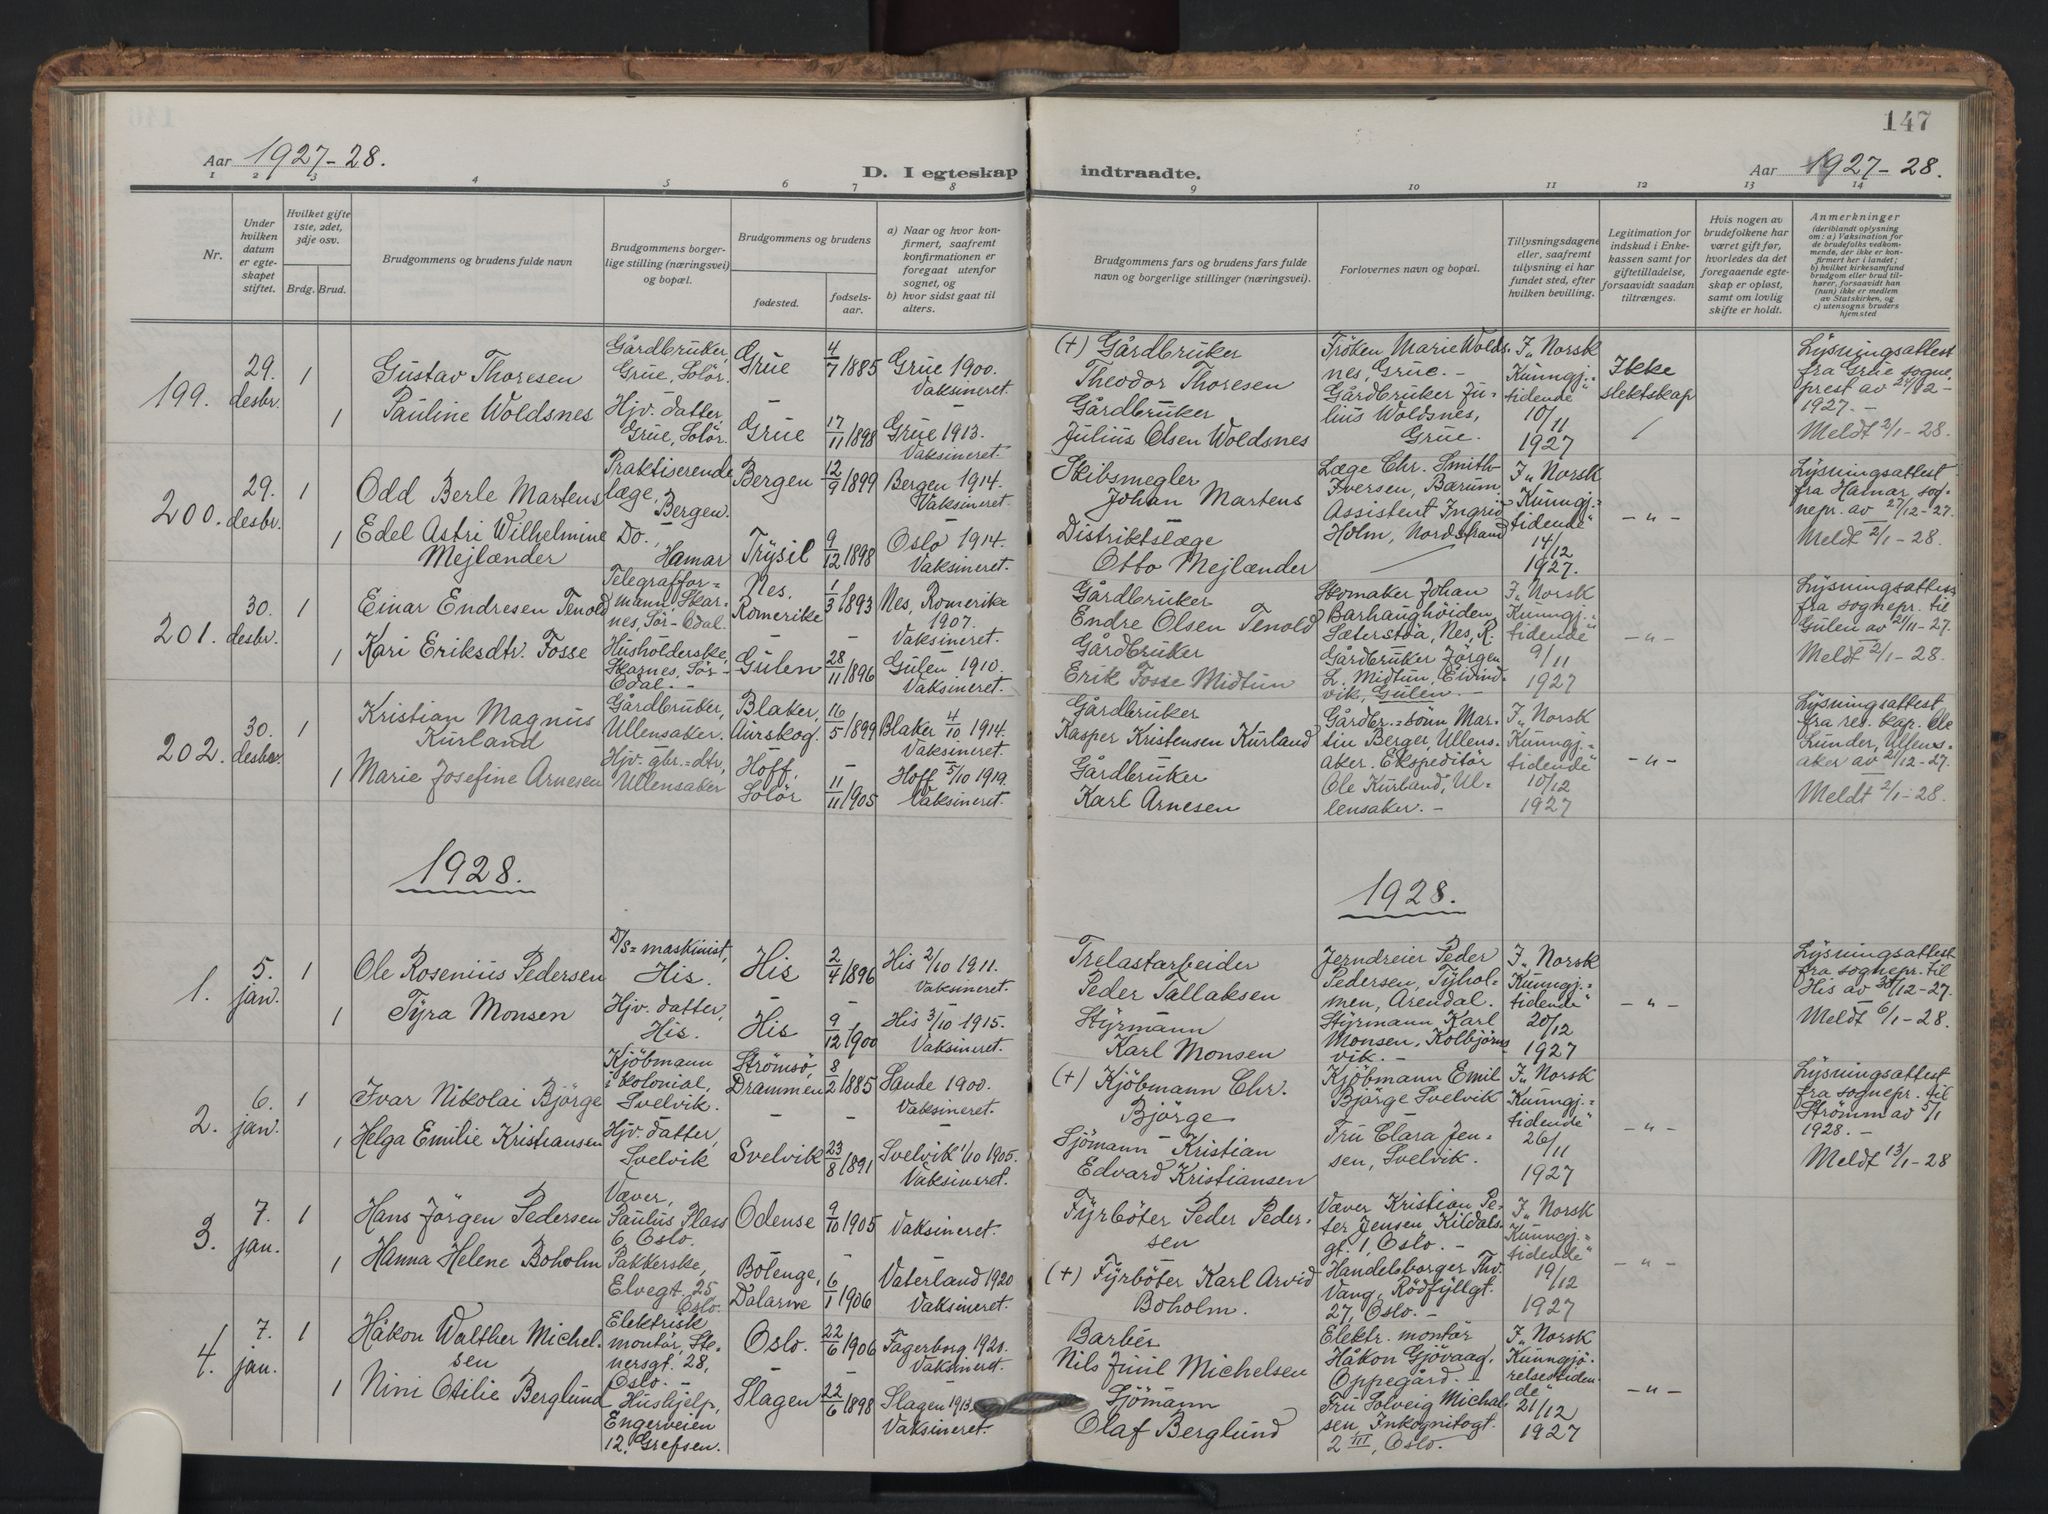 147
Aar 1927-28.
D. I egteskap indtraadte.
Aar 1927-28.
1 2 3 4 5 6 7 8 9 10 11 12 13 14
Nr.
Under hvilken datum er egteskapet stiftet.
Hvilket gifte 1ste, 2det, 3dje osv.
Brdg. Brud.
Brudgommens og brudens fulde navn
Brudgommens borgerlige stilling (næringsvei) og bopæl.
Brudgommens og brudens
fødested.
fødselsaar.
a) Naar og hvor konfirmert, saafremt konfirmationen er foregaat utenfor sognet, og
b) hvor sidst gaat til alters.
Brudgommens fars og brudens fars fulde navn og borgerlige stillinger (næringsvei).
Forlovernes navn og bopæl.
Tillysningsdagene eller, saafremt tillysning ei har fundet sted, efter hvilken bevilling.
Legitimation for indskud i Enkekassen samt for giftetilladelse, forsaavidt saadan tiltrænges.
Hvis nogen av brudefolkene har været gift før, hvorledes da det foregaaende egteskap er opløst, samt om lovlig skifte er holdt.
Anmerkninger
(deriblandt oplysning om: a) Vaksination for de brudefolks vedkommende, der ikke er konfirmert her i landet;
b) hvilket kirkesamfund brudgom eller brud tilhører, forsaavidt han (hun) ikke er medlem av Statskirken, og
c) utensogns bruders hjemsted
199. 29. desbr. 1
Gustav Thoresen
Gårdbruker, Grue, Solör.
Grue 4/7 1885
Grue 1900. Vaksineret.
(+) Gårdbruker Theodor Thoresen
1 Pauline Woldsnes
Hjv. datter, Grue, Solör.
Grue 17/11 1898
Grue 1913. Vaksineret.
Gårdbruker Julius Olsen Woldsnes
Fröken Marie Woldsnes, Grue. -
Gårdbruker Julius Woldsnes, Grue.
I „Norsk Kunngj.=tidende" 10/11 1927
Ikke slektskap
Lysningsattest fra Grue sogneprest av 27/12-1927. -
Meldt 2/1-28.
200. 29. desbr. 1
Odd Berle Martens
Praktiserende læge, Bergen.
Bergen 12/9 1899
Bergen 1914. Vaksineret.
Skibsmegler Johan Martens
1 Edel Astri Wilhelmine Mejlænder
Do., Hamar
Trysil 9/12 1898
Oslo 1914. Vaksineret.
Distriktslæge Otto Mejlænder
Læge Chr. Smith-Iversen, Bærum
Assistent Ingrid Holm, Nordstrand
I „Norsk Kunngj.=tidende" 14/12 1927.
-„-
Lysningsattest fra Hamar, sognepr. av 27/12-27.
Meldt 2/1-28.
201. 30. desbr. 1
Einar Endresen Tenold
Telegrafformann, Skarnes, Sör-Odal.
Nes, Romerike 1/3 1893
Nes, Romerike 1907. Vaksineret.
Gårdbruker Endre Olsen Tenold
1 Kari Eriksdtr. Fosse
Husholderske, Skarnes, Sör-Odal. -
Gulen 28/11 1896
Gulen 1910. Vaksineret.
Gårdbruker Erik Fosse Midtun
Skomaker Johan Barhaughöiden, Sæterstöa, Nes, R.
Gårdbruker Jörgen L. Midtun, Eivindvik, Gulen. -
I „Norsk Kunngj.=tidende" 9/11 1927
-„-
Lysningsattest fra sognepr. til Gulen av 21/11-27.
Meldt 2/1-28.
202. 30. desbr. 1
Kristian Magnus Kurland
Gårdbruker, Ullensaker.
Blaker, Aurskog. 16/5 1899
Blaker 4/10 1914. Vaksineret.
Gårdbruker Kasper Kristensen Kurland
1 Marie Josefine Arnesen
Hjv. gbr.-dtr, Ullensaker
Hoff, Solör 11/11 1905
Hoff 5/10 1919. Vaksineret.
Gårdbruker Karl Arnesen
Gårdbr.=sönn Martin Berger, Ullensaker. Ekspeditör Ole Kurland, Ullensaker. -
I „Norsk Kunngj.=tidende" 10/12 1927
-„-
Lysningsattest fra res. kap. Ole Lunder, Ullensaker av 21/12-27.
Meldt 2/1-28.
1928.
1928.
1. 5. jan. 1
Ole Rosenius Pedersen
D/S=maskinist, His.
His 2/4 1896
His 2/10 1911. Vaksineret.
Trelastarbeider Peder Tallaksen
1 Tyra Monsen
Hjv. datter, His.
His 9/12 1900
His 3/10 1915. Vaksineret.
Styrmann Karl Monsen
Jerndreier Peder Pedersen, Tyholmen, Arendal.
Styrmann Karl Monsen, Kolbjörnsvik. -
I „Norsk Kunngj.=tidende" 20/12 1927
-„-
Lysningsattest fra sognepr. til His av 30/12-27.
Meldt 6/1-28.
2. 6. jan. 1
Ivar Nikolai Björge
Kjöbmann i kolonial, Svelvik.
Strömsö, Drammen 8/2 1885
Sande 1900. Vaksineret.
(+) Kjöbmann Chr. Björge
1 Helga Emilie Kristiansen
Hjv. datter, Svelvik
Svelvik 23/8 1891
Svelvik 1/10 1905. Vaksineret.
Sjömann Kristian Edvard Kristiansen
Kjöbmann Emil Björge Svelvik
Fru Clara Jensen, Svelvik.
I „Norsk Kunngj.=tidende" 26/11 1927
-„-
Lysningsattest fra sognepr. til Strömm av 5/1 1928. -
Meldt 13/1-28
3. 7. jan. 1
Hans Jörgen Pedersen
Væver, Paulus Plass 6, Oslo.
Odense 9/10 1905
Vaksineret.
Fyrböter Peder Pedersen
1 Hanna Helene Boholm
Pakkerske, Elvegt. 25 Oslo.
Bolenge, Dalarne 6/1 1906
Vaterland 1920 Vaksineret.
(+) Fyrböter Karl Arvid Boholm.
Væver Kristian Peter Jensen, Kildalsgt. 1, Oslo. -
Handelsborger Thv. Vang, Rödfyllgt. 27, Oslo. -
I „Norsk Kunngj.=tidende" 19/12 1927
-„-
4. 7. jan. 1
Håkon Walther Michelsen
Elektrisk montör, Stenersgt. 28, Oslo. -
Oslo. 22/6 1906
Fagerborg 1920. Vaksineret.
Barbér Nils Juul Michelsen
1 Nini Otilie Berglund
Hushjelp, Engerveien 12, Grefsen.
Slagen 22/6 1898
Slagen 1913. Vaksineret.
Sjömann Olaf Berglund
Elektr. montör Håkon Gjövaag, Oppegård. -
Fru Solveig Michalsen, Inkognitogt. 2 III, Oslo.
I „Norsk Kunngjörelsestidende" 21/12 1927
-„-